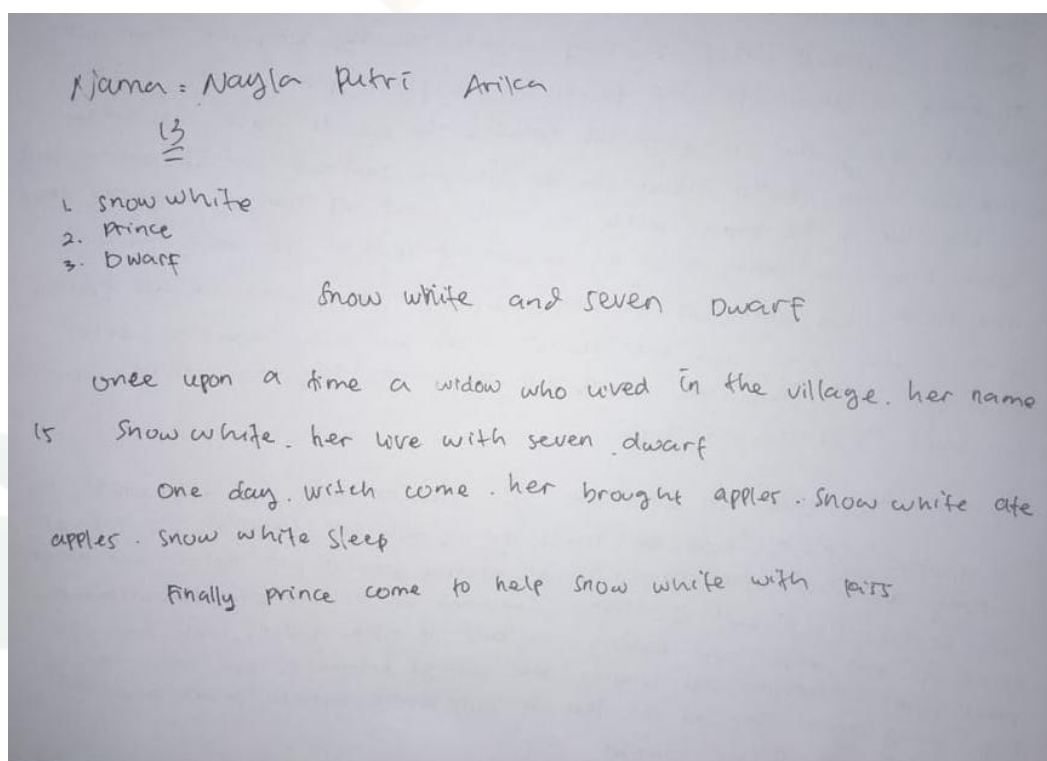 Nama : Nayla Putri Arika
13
1. Snow white
2. Prince
3. Dwarf
Snow white and seven Dwarf
once upon a time a widow who lived in the village. her name
is Snow white. her love with seven dwarf
One day. witch come. her brought apples. Snow white ate
apples. Snow white sleep
Finally prince come to help snow white with kiss